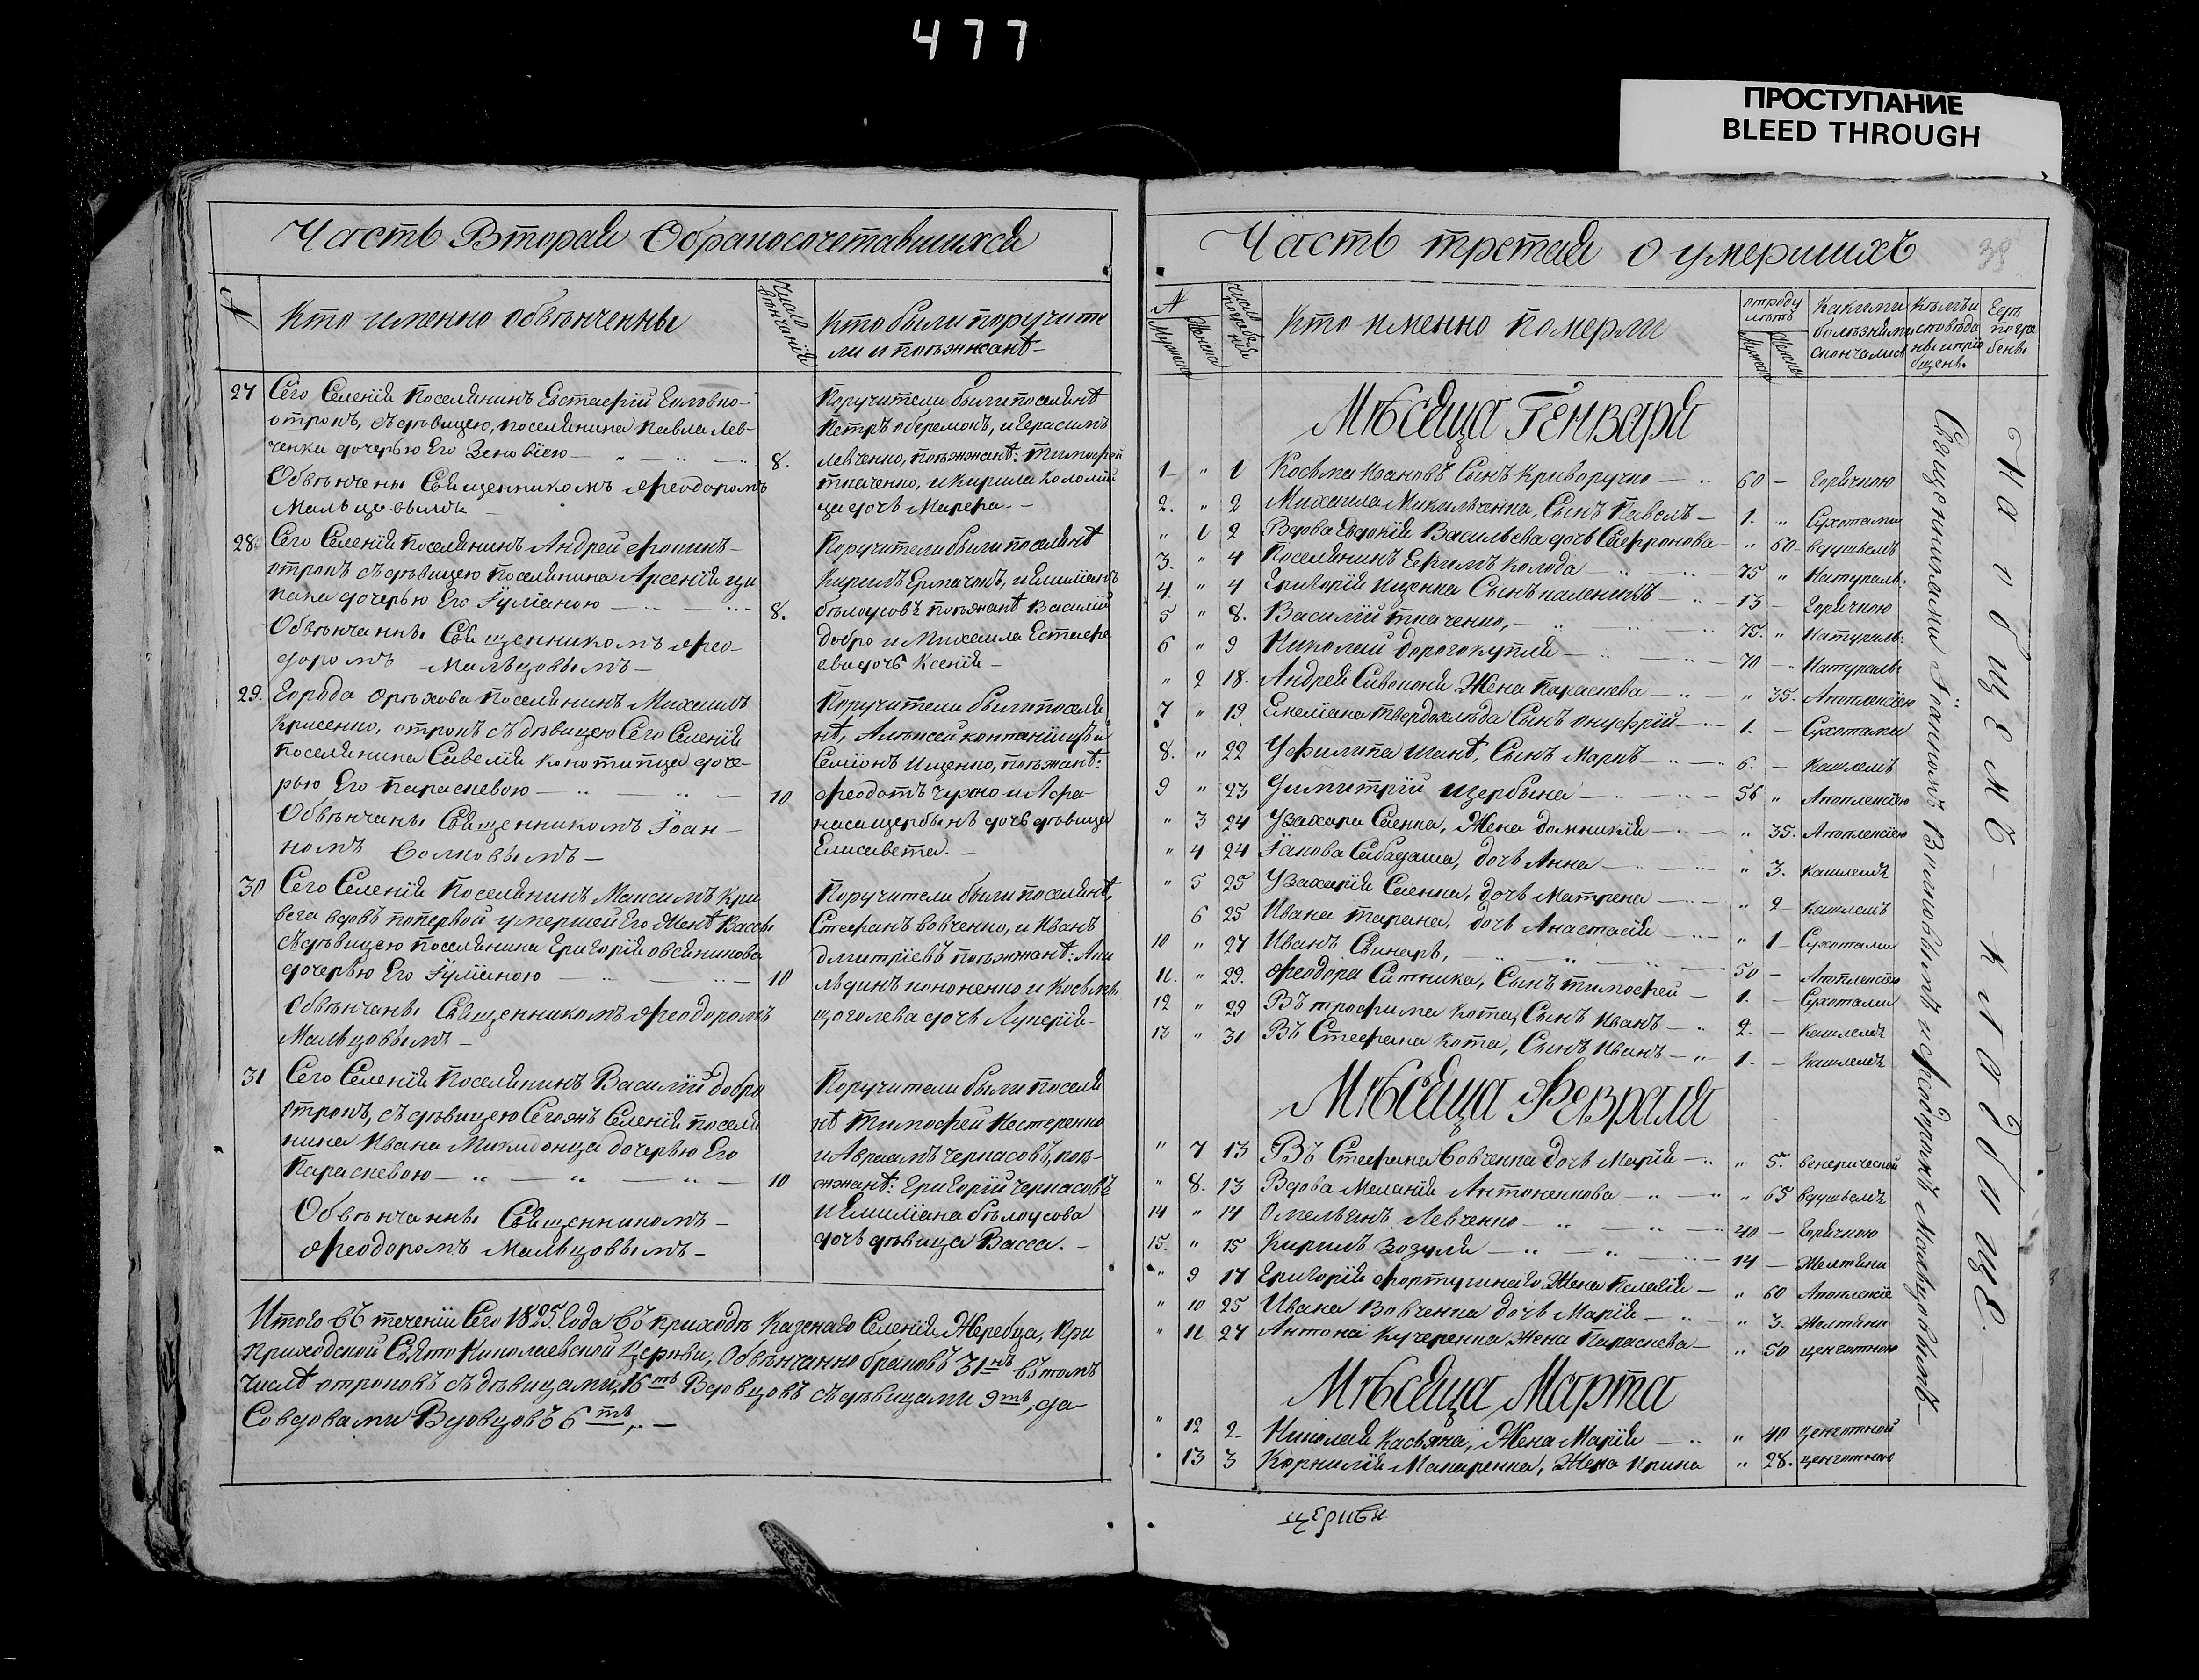 477
ПРОСТУПАНИЕ
BLEED THROUGH
Часть Вторая О бракосочетавшихся
№
Кто именно обвѣнченны
Число вѣнчаній
Кто были поручите
ли и поѣзжанѣ
27
Сего Селенія Поселянинъ Евстафій
отрокъ, съ дѣвицею, поселянина Павла Лев-
ченка дочерью Его Зеновіею
8.
Обвѣнчены Священникомъ Феодоромъ
Мальцовымъ
Поручители были поселянѣ
Петръ оберемокъ, и Герасимъ
левченко, поѣзжанѣ: Тимофей
ткаченко, и Кирила Коломій
ца дочь Марфа.
28
Сего Селенія Поселянинъ Андрей
отрокъ съ дѣвицею поселянина Арсенія ца
пака дочерью Его Іуліаною
8.
Обвѣнчанны Священникомъ Фео-
доромъ Мальцовымъ
Поручители были поселянѣ
Кирилъ Ермачокъ, и Емиліанъ
бѣлоусовъ поѣзжанѣ Василій
добро и Михаила Естафе
ева дочь Ксенія
29.
Города Орѣхова Поселянинъ Михаилъ
отрокъ съ дѣвицею Сего Селенія
поселянина Савелія Конотипца доче-
рью Его Параскевою
10
Обвѣнчаны Священникомъ Іоан-
номъ Волковымъ
Поручители были посел
нѣ, Алексей компаніецъ и
Семіонъ Ищенко, поѣзжанѣ:
Феодотъ Чужко и Афа-
наса щербынѣ дочь дѣвица
Елисавета.
30
Сего Селенія Поселянинъ Максимъ Кри
вега вдовъ попервой умершей Его Женѣ Вассы
съ дѣвицею поселянина Григорія овсяникова
дочерью Его Іуліаною
10
Обвѣнчаны Священникомъ Феодоромъ
Мальцовымъ
Поручители были поселянѣ,
Стефанъ вовченко, и Иванъ
дмитріевъ поѣзжанѣ: Аки
льдинъ кононенко и Косьмы
щоголева дочь Лукерія
31
Сего Селенія Поселянинъ Василій добро
отрокъ, съ дѣвицею Сегожъ Селенія посел
нина Ивана Микидонца дочерью Его
Параскевою
10
Обвѣнчанны Священникомъ
Феодоромъ Мальцовымъ
Поручители были посел
нѣ Тимофей Нестеренко
и Авраамъ Черкасовъ, поѣ-
зжанѣ: Григорій Черкасовъ
и Емиліана бѣлоусова
дочь дѣвица Васса.
Итого въ теченіи Сего 1825. Года въ приходѣ Казенаго Селенія Жеребца, при
приходской Свято Николаевской Церкви, Обвѣнчанно браковъ 31нъ въ томъ
Числѣ отроковъ съ дѣвицами, 16ть Вдовцовъ съ дѣвицами 9ть, да
Со вдовами Вдовцовъ 6ть,
Часть третая о умершихъ
38
№
Мужеска
Женска
Число погребеній
Кто именно померли
отроду лѣтъ
Мужеска
Женска
Какими
болѣзними
скончались
Кѣмъ и
сповѣда
ны и прі
общены
Гдѣ
погре
бены
Мѣсяца Генваря
1 " 1 Косьма Ивановъ Сынъ Криворучко 60 — Горячкою
2. " 2 Михаила Микильченка, Сынъ Павелъ 1. " Сухотами
" 1 2 Вдова Евдокія Васильева дочь Сафронова " 60 вдушьемъ
3. " 4 Поселянинъ Ефимъ Колода 75 " Натураль:
4. " 4 Григорія Ищенка Сынъ каленикъ 13 — Горячкою
5 " 8. Василій ткаченко, 75. " Натураль:
6 " 9 Николай дорогокупля 70 — " Натураль
" 2 18. Андрея Сивоконя Жена Параскева " 35. Апоплексіею
7 " 19 Емеліана твердохлѣба Сынъ онуфрій 1. — Сухотами
8. " 22 У Филипа Шакѣ, Сынъ Маркъ 6. — Кашлемъ
9 " 23 Димитрій щербына 56 " Апоплексіею
" 3 24 У захара Саенка, Жена домникія " 35. Апоплексіею
" 4 24 Іакова Сабадаша, дочь Анна " 3. Кашлемъ
" 5 25 У захарія Саенка, дочь Матрена " 2 Кашлемъ
6 25 Ивана тарана, дочь Анастасія " 1 Сухотами
10 " 27 Иванъ Свинаръ, 50 — Апоплексіею
11. " 29. Феодора Ситника, Сынъ тимофей 1. — Сухотами
12 " 29 Въ трофима Кота, Сынъ Иванъ 2. — Кашлемъ
13 " 31 Въ Стефана Кота, Сынъ Иванъ 1. — Кашлемъ
Мѣсяца Февраля
" 7 13 Въ Стефана Вовченка дочь Марія " 5. венерической
" 8. 13 Вдова Меланія Антоненкова " 65 вдушьемъ
14 " 14 Омельянъ Левченко 40 — Горячкою
15. " 15 Кирилъ Зозуля 14 — Желтяни
" 9 17 Григорія Фортушнаго Жена Пелагія " 60 Апоплексіе
" 10 25 Ивана Вовченка дочь Марія " 3. Желтяни
" 11 27 Антона Кучеренка Жена Параскева " 50 цинготною
Мѣсяца Марта
" 12 2 Николая Касьяна, Жена Марія " 40 цинготной
" 13 3 Корнилія Макаренка, Жена Ирина " 28. цинготною
Священниками Іоанномъ Волковымъ и Феодоромъ Мальцовымъ
На общемъ кладбищѣ.
церкви